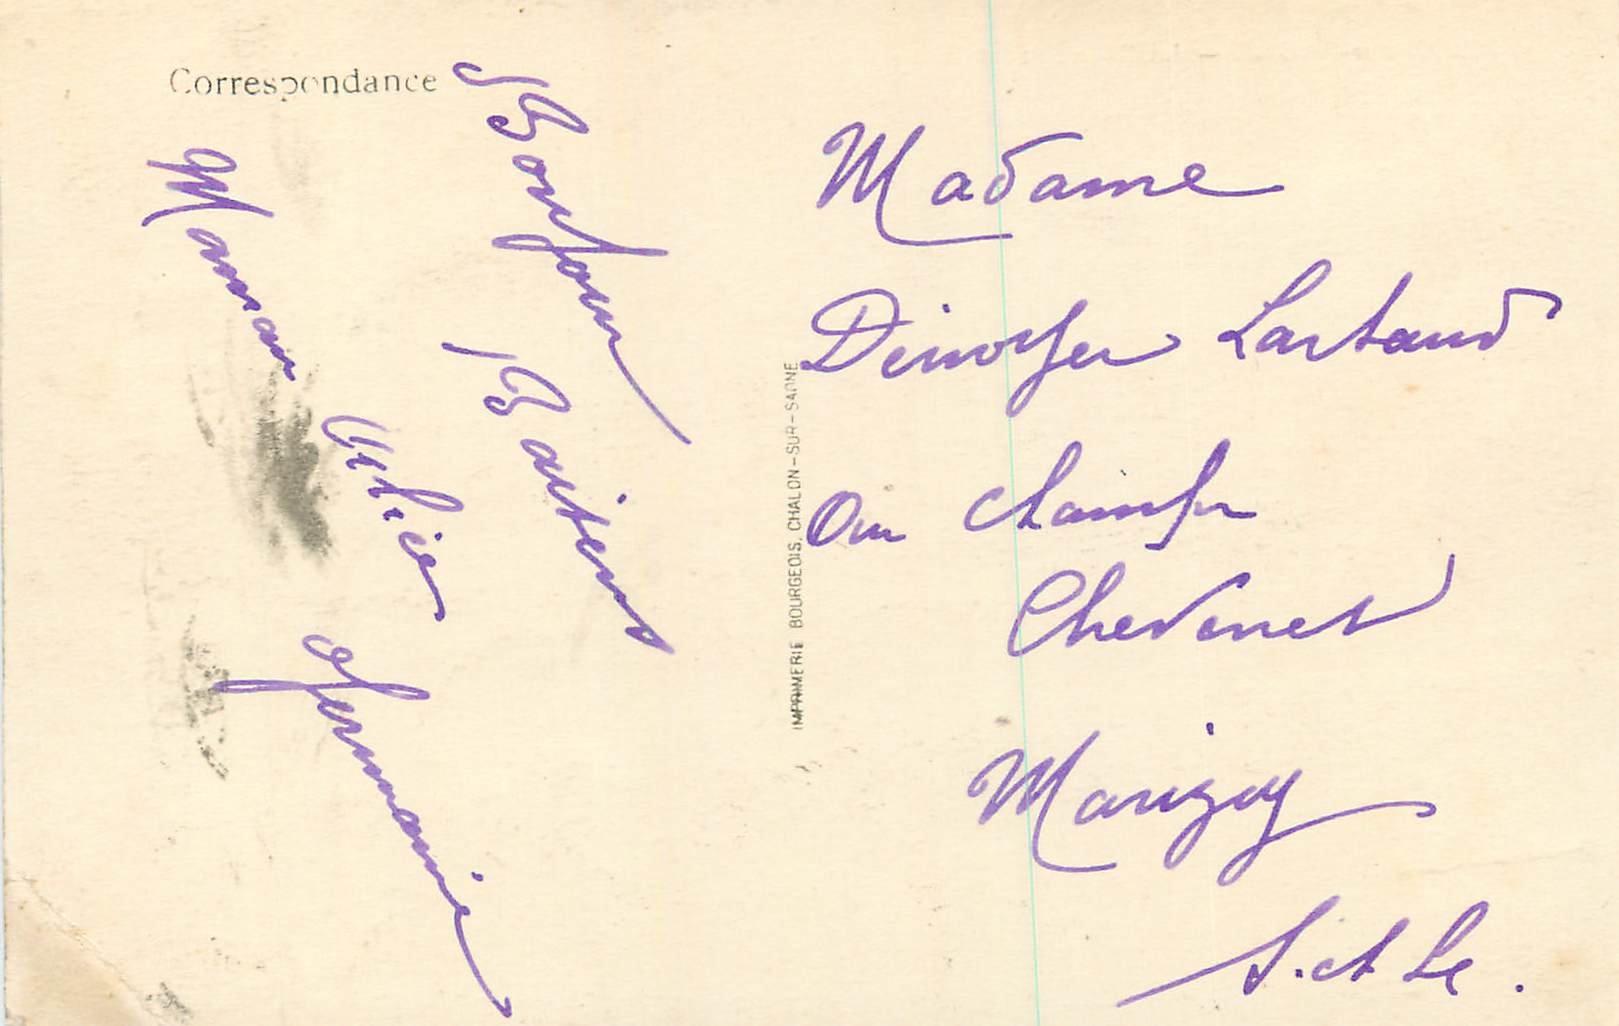 Correspondance
Bonjour
Baisers
Maman Alice
Germaine
IMPRIMERIE BOURGEOIS, CHALON-SUR-SAONE
Madame
Denoyer Lartaud
Au champ
Chevenet
Marigny
S. et L.